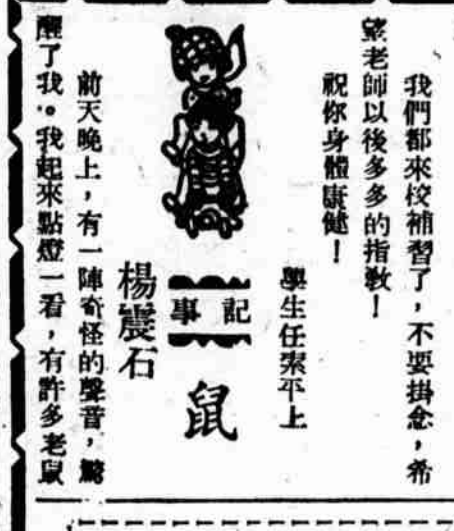 我們都來校補習了，不要掛念，希
望老師以後多多的指敎！
祝你身體康健！
學生任素平上
記事
鼠
楊震石
前天晚上，有一陣奇怪的聲音，驚
醒了我。我起來點燈一看，有許多老鼠